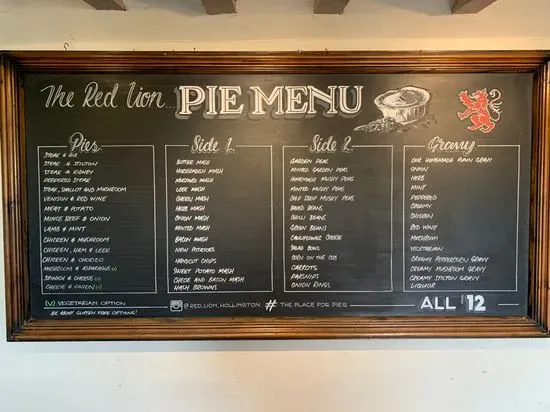 The Red Lion... PIE MENU
Pies
STEAK & ALE
STEAK & STILTON
STEAK & KIDNEY
PEPPERED STEAK
STEAK, SHALLOT AND MUSHROOM
VENISON & RED WINE
MEAT & POTATO
MINCE BEEF & ONION
LAMB & MINT
CHICKEN & MUSHROOM
CHICKEN, HAM & LEEK
CHICKEN & CHORIZO
MUSHROOM & ASPARAGUS (V)
SPINACH & CHEESE (V)
CHEESE & ONION (V)
Side 1
BUTTER MASH
HORSERADISH MASH
MUSTARD MASH
LEEK MASH
CHEESY MASH
HERB MASH
ONION MASH
MINTED MASH
BACON MASH
NEW POTATOES
HANDCUT CHIPS
SWEET POTATO MASH
CHEESE AND BACON MASH
HASH BROWNS
Side 2
GARDEN PEAS
MINTED GARDEN PEAS
HOMEMADE MUSHY PEAS
MINTED MUSHY PEAS
CHIP SHOP MUSHY PEAS
BAKED BEANS
CHILLI BEANS
GREEN BEANS
CAULIFLOWER CHEESE
BROAD BEANS
CORN ON THE COB
CARROTS
PARSNIPS
ONION RINGS
Gravy
OUR HOMEMADE PLAIN GRAVY
ONION
HERB
MINT
PEPPERED
CREAMY
CHICKEN
RED WINE
MUSHROOM
VEGETARIAN
CREAMY PEPPERCORN GRAVY
CREAMY MUSHROOM GRAVY
CREAMY STILTON GRAVY
LIQUOR
(V) VEGETARIAN OPTION
GLUTEN FREE OPTIONS!
@RED_LION_HOLLINGTON # THE PLACE FOR PIES
ALL £12